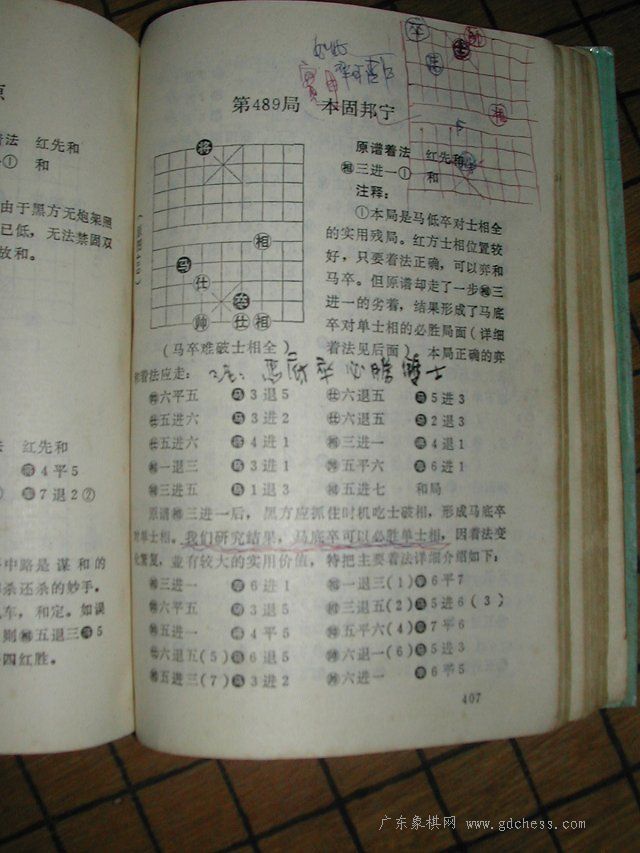 第489局 本固邦宁
原谱着法 红先和
相三进一① 和
注释:
①本局是马低卒对士相全
的实用残局。红方士相位置较
好，只要着法正确，可以弈和
马卒。但原谱却走了一步相三
进一的劣着，结果形成了马底
卒对单士相的必胜局面(详细
着法见后面) 本局正确的弈
将
相
马
仕
卒
帅 仕 相
(马卒难破士相全)
和着法应走:
仕六平五 马3退5 仕六退五 马5进3
仕五进六 马3进2 仕六退五 马2退3
仕五进六 卒4进1 相三进一 卒4退1
相一退三 马3进1 帅五平六 卒6进1
相三进五 马1退3 相五进七 和局
原谱相三进一后，黑方应抓住时机吃士破相，形成马底卒
对单士相。我们研究结果，马底卒可以必胜单士相，因着法变
化繁复，並有较大的实用价值，特把主要着法详细介绍如下:
相三进一 卒6进1 相一退三(1)卒6平7
帅六平五 马3退5 相三退五(2)马5进6(3)
帅五进一 将4平5 帅五平六(4)卒7平6
仕六退五(5)马6退5 帅六退一(6)马5进3
相五进三(7)马3进2 帅六进一 卒6平5
407
原
着法 红先和
① 和
由于黑方无炮架照
已低，无法禁固双
故和。
法 红先和
将4平5
卒7退2②
中路是谋和的
和杀还杀的妙手。
车，和定。如误
则相五退三马5
四红胜。
广东象棋网 www.gdchess.com